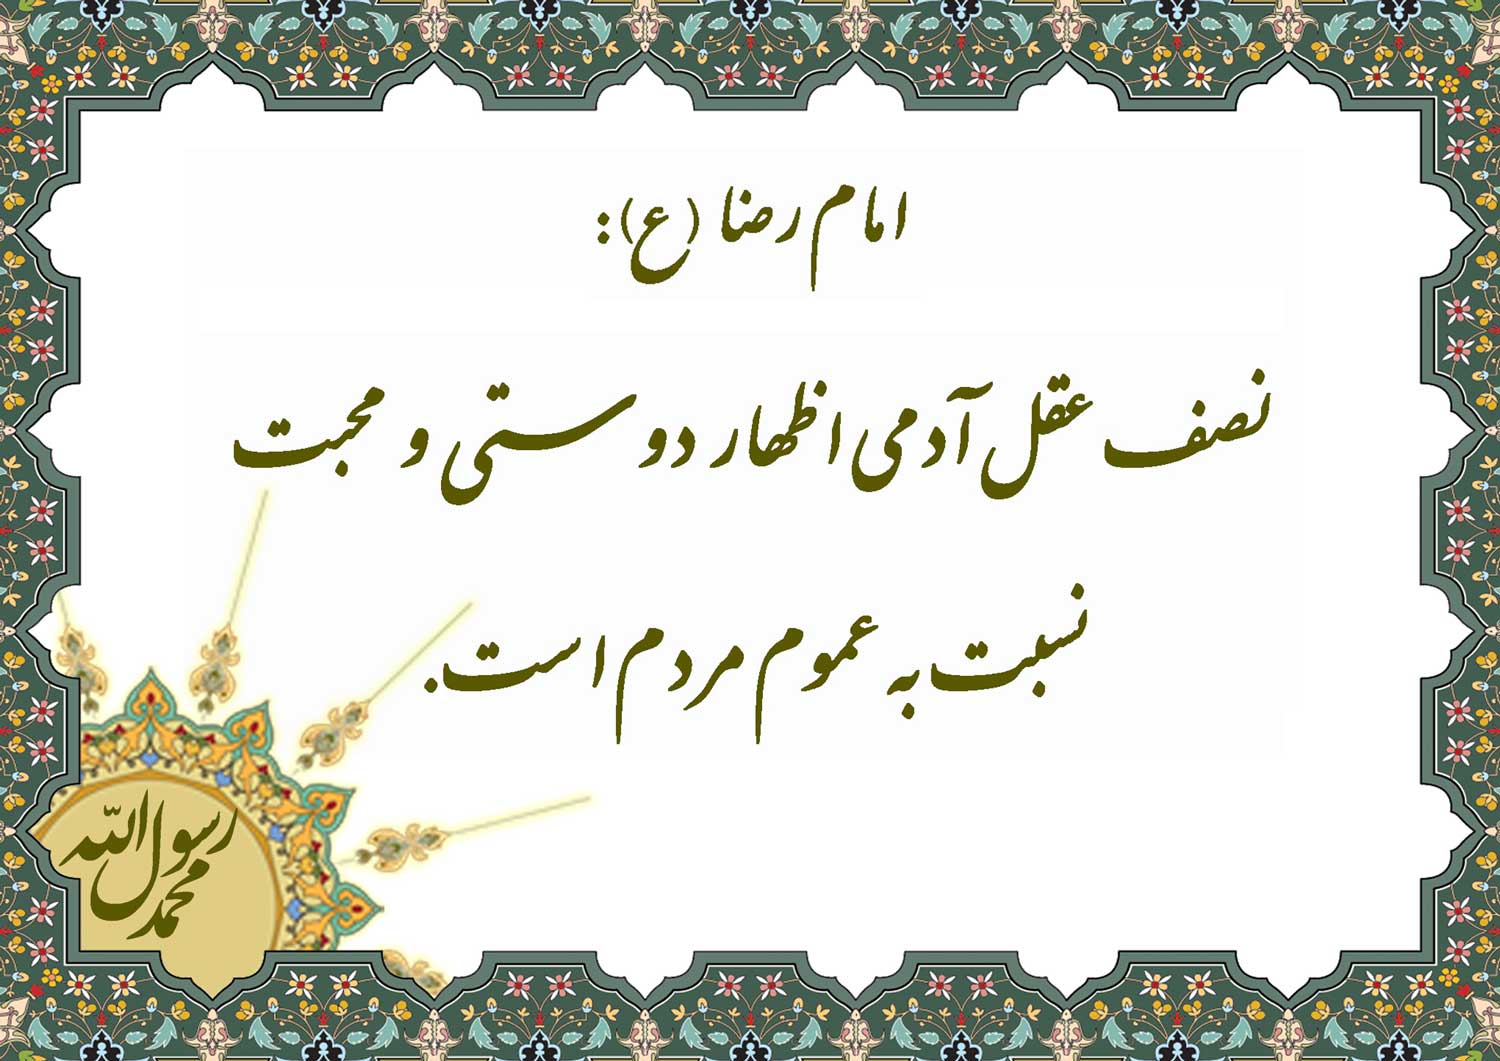 امام رضا (ع):
نصف عقل آدمی اظهار دوستی و محبت
نسبت به عموم مردم است.
محمد رسول الله